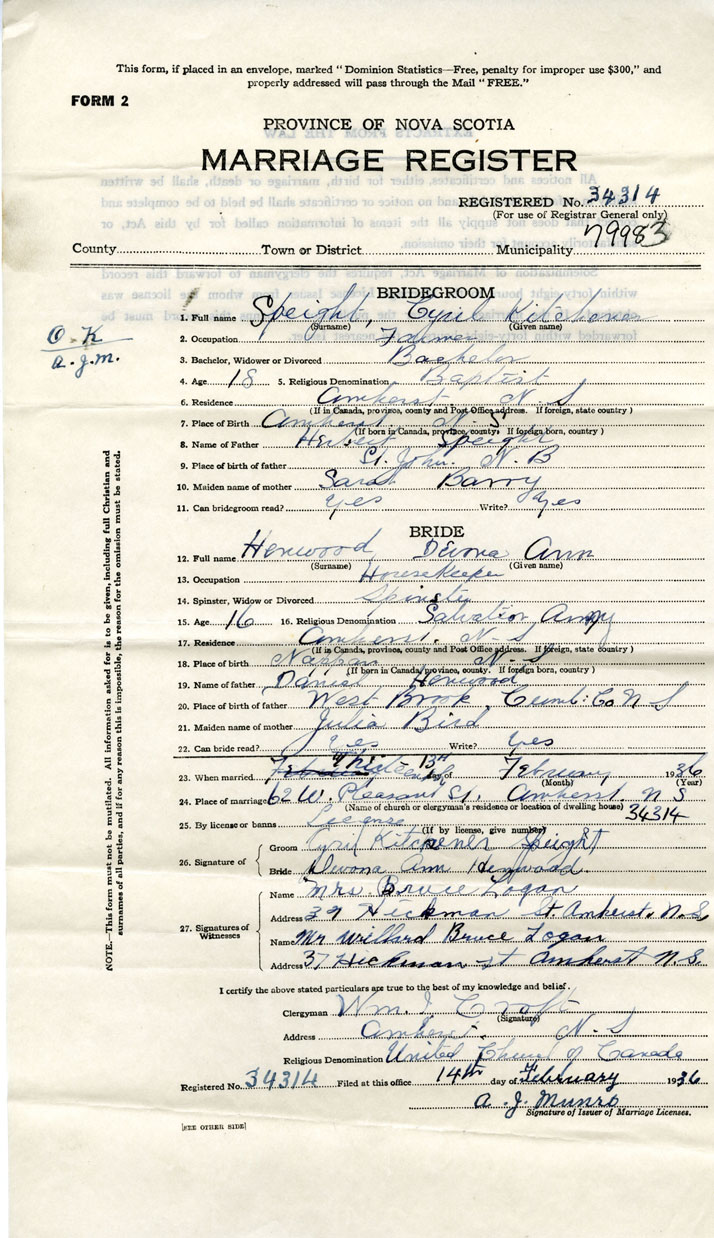 This form, if placed in an envelope, marked "Dominion Statistics—Free, penalty for improper use $300," and
properly addressed will pass through the Mail "FREE."
FORM 2
PROVINCE OF NOVA SCOTIA
MARRIAGE REGISTER
REGISTERED No. 34314
(For use of Registrar General only)
79983
County Town or District Municipality
BRIDEGROOM
O.K
A.J.M.
1. Full name Speight, Cyril Kitchener
(Surname) (Given name)
2. Occupation Farmer
3. Bachelor, Widower or Divorced Bachelor
4. Age 18 5. Religious Denomination Baptist
6. Residence Amherst N.S
(If in Canada, province, county and Post Office address. If foreign, state country)
7. Place of Birth Amherst N.S
(If born in Canada, province, county. If foreign born, country)
8. Name of Father Herbert Speight
9. Place of birth of father St. John. N.B
10. Maiden name of mother Sarah Barry
11. Can bridegroom read? Yes Write? Yes
BRIDE
12. Full name Henwood Ann
(Surname) (Given name)
13. Occupation Housekeeper
14. Spinster, Widow or Divorced Spinster
15. Age 16 16. Religious Denomination Salvation Army
17. Residence Amherst. N-S
(If in Canada, province, county and Post Office address. If foreign, state country)
18. Place of birth N-S
(If born in Canada, province, county. If foreign born, country)
19. Name of father Daniel Henwood
20. Place of birth of father West Brook, Cumb: Co N S
21. Maiden name of mother Julia Bird
22. Can bride read? Yes Write? Yes
23. When married 13th day of February 1936
(Month) (Year)
24. Place of marriage 62 W. Pleasant St. Amherst. N S
(Name of church or clergyman's residence or location of dwelling house)
25. By license or banns License 34314
(If by license, give number)
26. Signature of
Groom Cyril Kitchener Speight
Bride Ann Henwood.
27. Signatures of Witnesses
Name Mrs Bruce Logan
Address 37 Hickman St Amherst. N.S.
Name Mr Willard Bruce Logan
Address 37 Hickman St Amherst N.S.
I certify the above stated particulars are true to the best of my knowledge and belief.
Clergyman Wm. I. Croft
(Signature)
Address Amherst. N.S
Religious Denomination United Church of Canada
Registered No. 34314 Filed at this office 14th day of February 1936
A. J. Munro
Signature of Issuer of Marriage Licenses.
[SEE OTHER SIDE]
NOTE.—This form must not be mutilated. All information asked for is to be given, including full Christian and
surnames of all parties, and if for any reason this is impossible, the reason for the omission must be stated.